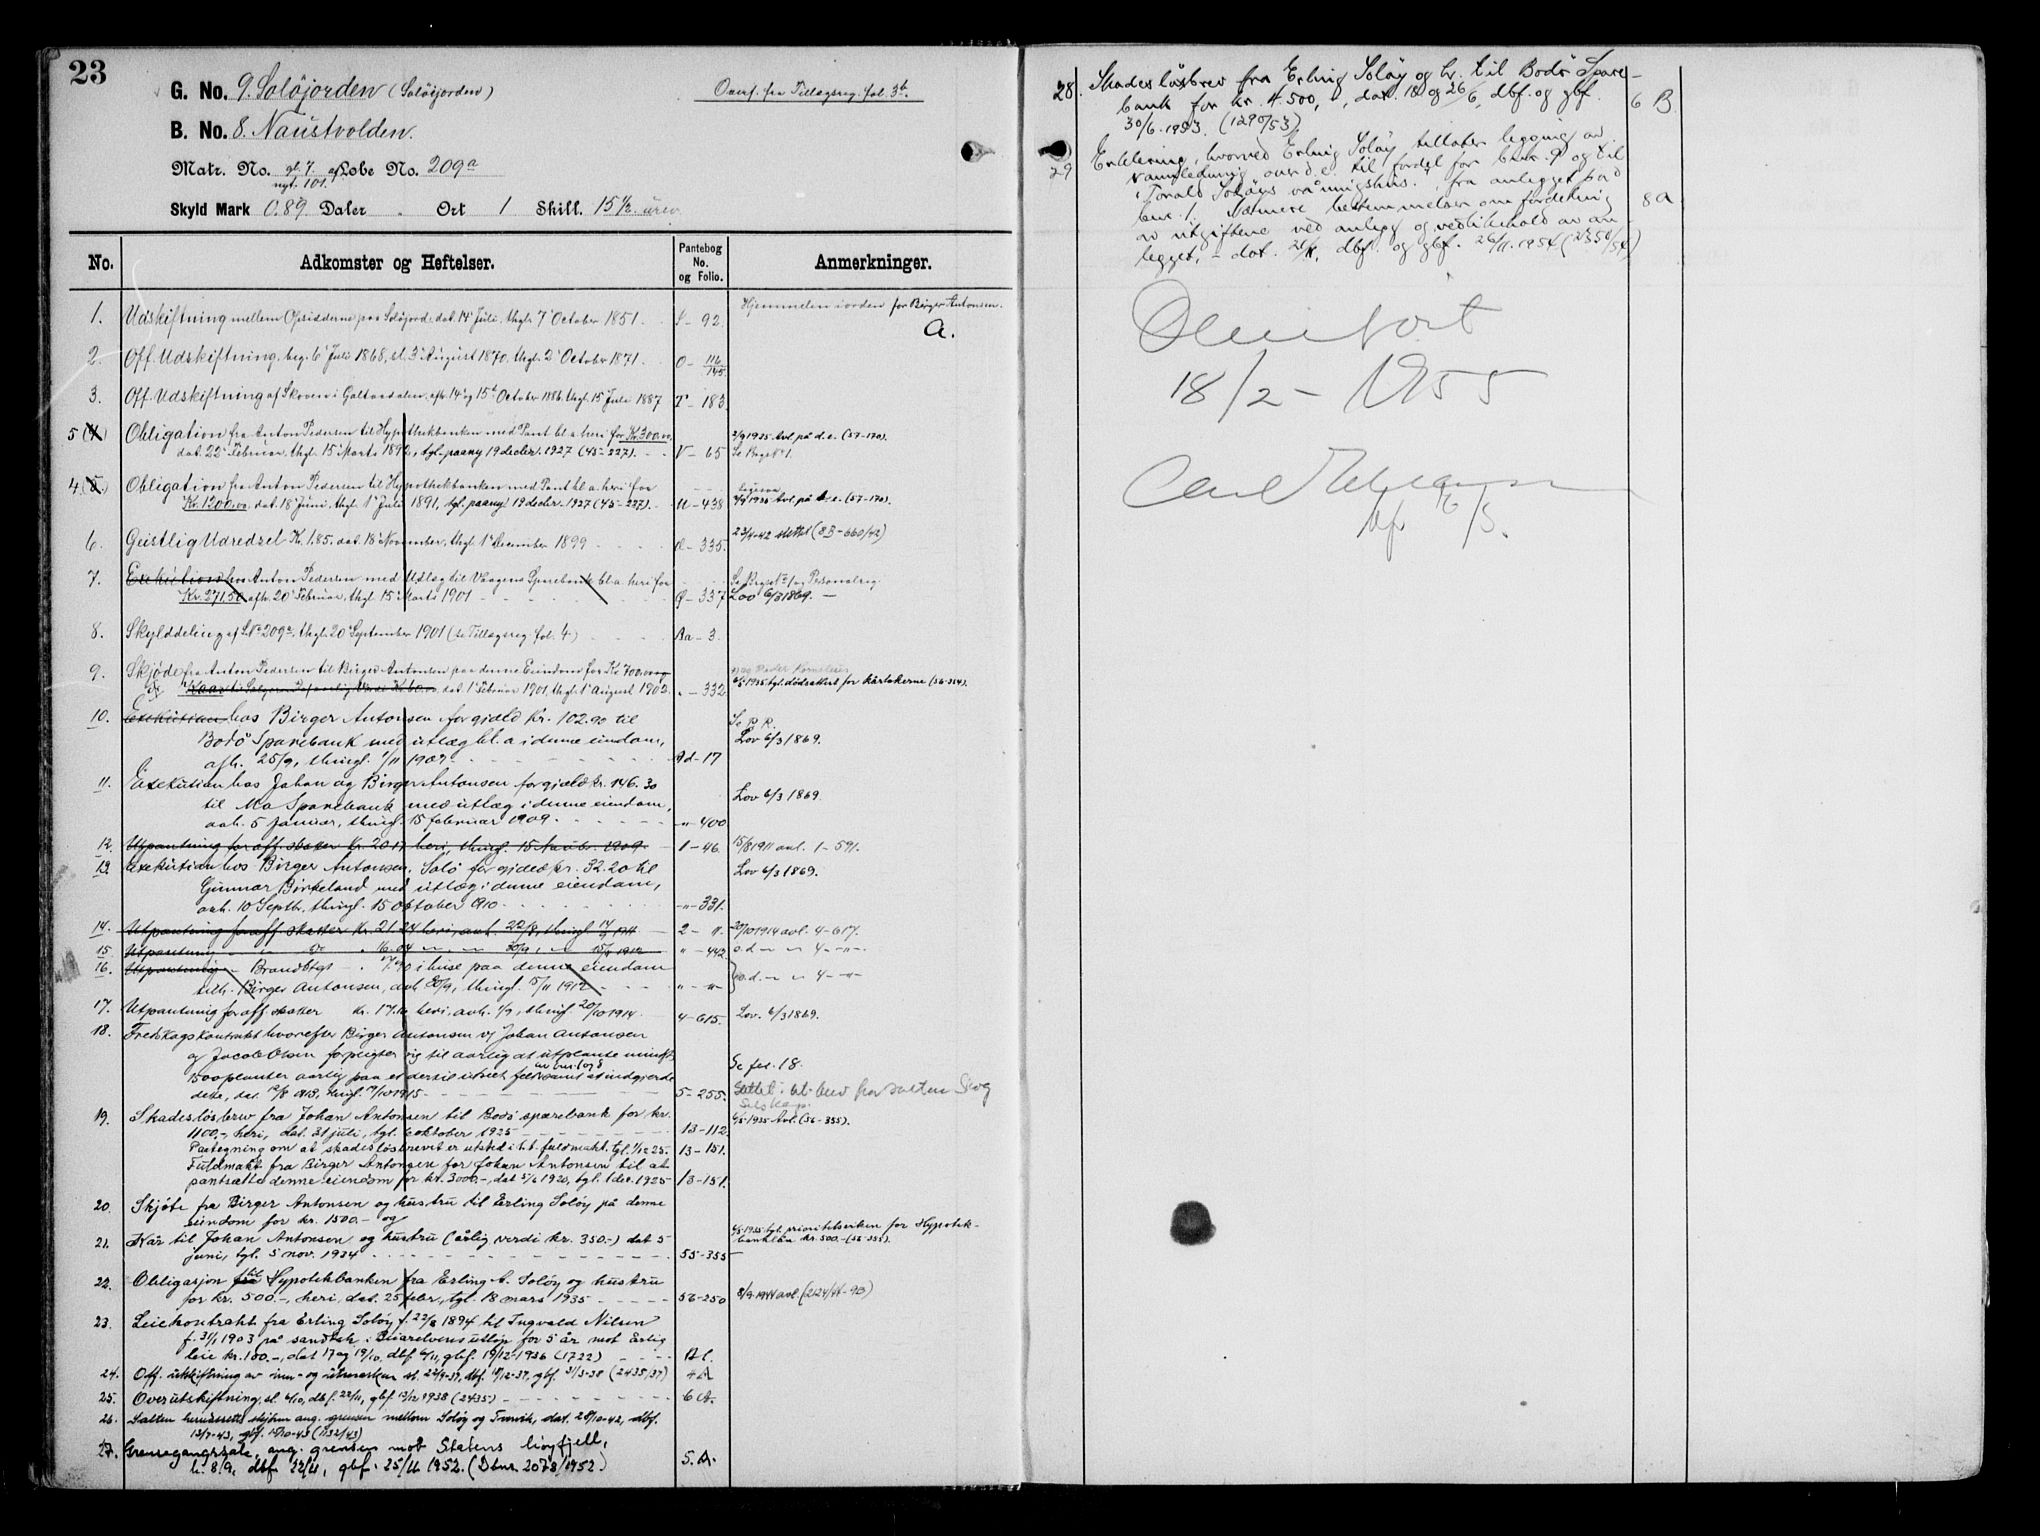 23
G. No. 9. Solöjorden (Solöijorden)
Overf. fra Tillægsreg. fol. 3b.
B. No. 8. Naustvolden.
Matr. No. gl. 7. af Løbe No. 209a
nyt. 101.
Skyld Mark 0.89 Daler - Ort 1 Skill. 15 1/2 urev.
No. Adkomster og Heftelser. Pantebog No. og Folio. Anmerkninger.
1. Udskiftning mellem Opsidderne paa Solöjord. dat. 14 Juli, thgl. 7 October 1851. S - 92. Hjemmelen i orden for Birger Antonsen.
A.
2. Off. Udskiftning, beg. 6 Juli 1868, sl. 3 August 1870, thgl. 2 October 1871. O - 116/145.
3. Off. Udskiftning af Skoven i afh. 14 og 15 October 1886, thgl. 15 Juli 1887 T - 183.
5 (4) Obligation fra Anton Pedersen til Hypothekbanken med Pant bl. a. heri for Kr. 300.00, 2/9 1935 Avl. på d. e. (57-170).
dat. 22 Februar, thgl. 15 Marts 1892, tgl. paany 19 decbr. 1927 (45-227). V - 65 Se Bogs No 1.
4 (5) Obligation fra Anton Pedersen til Hypothekbanken med Pant bl. a. heri for
Kr. 1200.00, dat. 18 Juni, thgl. 1 Juli 1891, tgl. paany 19 decbr. 1927 (45-227). U - 438 1935 Avl. på d. e. (57-170).
6. Geistlig Udredsel K. 1,85. dat. 18 November, thgl. 1 December 1899 335. 23/4-42 slettet (8B-660/42)
7. Exekution hos Anton Pedersen med Udlæg til Vaagens Sparebank bl. a. heri for Se Bogs No 1 og Personalreg.
Kr. 271.50 afh. 20 Februar, thgl. 15 Marts 1901 337 Lov 6/3 1869.
8. Skylddeling af L No 209a, thgl. 20 September 1901 (se Tillægsreg. fol. 4) Aa - 3.
9. Skjøde fra Anton Pedersen til Birger Antonsen paa denne Eiendom for Kr. 700.00 og
Kaar til dat. 1 Februar 1901, thgl. 1 August 1902. " - 332 1935 tgl. dødsattest for kårtakerne (56-354).
10. Exekution hos Birger Antonsen for gjæld Kr. 102.90 til Se P. R.
Bodö Sparebank med utlæg bl. a i denne eiendom, Lov 6/3 1869.
afh. 25/9, thingl. 1/11 1907 Ad - 17
11. Exekution hos Johan og Birger Antonsen for gjæld kr. 146.30
til Mo Sparebank med utlæg i denne eiendom, Lov 6/3 1869.
avh. 5 Januar, thingl. 15 februar 1909. " - 400
12. Utpantning for off. skatter Kr. 20.17 heri, thingl. 15 Novbr. 1909 1 - 46. 15/8 1911 avl. 1 - 591.
13. Exekution hos Birger Antonsen, Solö for gjæld kr. 32.20 til Lov 6/3 1869.
Gunnar Birkeland med utlæg i denne eiendom,
avh. 10 Septbr. thingl. 15 Oktober 1910 " - 331.
14. Utpantning for off. skatter Kr. 21.24 heri, avh. 22/8, thingl. 2 - 11. 20/10 1914 avl. 4-617.
15 Utpantning 16.04 30/9, 15/11 1912 " - 442 o. d.
16. Utpantning Brandktgt i huse paa denne eiendom
tilh. Birger Antonsen, avh 30/9, thingl. 15/11 1912 o. d.
17. Utpantning for off. skatter kr. 17. heri, avh. 1/9, thingl. 20/10 1914 4 - 615. Lov. 6/3 1869.
18. hvorefter Birger Antonsen og Johan Antonsen
og Jacob Olsen forpligter sig til aarlig at utplante mindst Se fol. 18.
1500 planter aarlig paa et dertil utseet felt samt at indgjerde
dette, dat. 12/8 1913, thingl. 1915 5 - 255. Slettet: bt. brev fra Salten Skog
Selskap.
19. Skadesløsbrev fra Johan Antonsen til Bodö sparebank for kr. 1935 Avl. (56-355).
1100,- heri, dat. 31 juli, tgl. 6 oktober 1925 13 - 112
Paategning om at skadesløsbrevet er utstedt i h.t. fuldmakt. tgl. 1/12 25. 13 - 151.
Fuldmakt fra Birger Antonsen for Johan Antonsen til at
pantsætte denne eiendom for kr. 3000,-, dat 5/6 1920, tgl. 1 dec. 1925 13 - 151.
20. Skjøte fra Birger Antonsen og hustru til Erling Soløy på denne
eiendom for kr. 1500.- og
21. Kår til Johan Antonsen og hustru (årlig verdi kr. 350.-) dat 5 1935 tgl. prioritetsviken for Hypotek-
juni, tgl. 5 nov. 1934 55 - 355 banklån kr. 500.- (56-355).
22. Obligasjon til Hypotekbanken fra Erling A. Soløy og hustru
for kr. 500.-, heri, dat. 25 febr, tgl. 18 mars 1935 56 - 250 8/9-1944 avl. (2124/44-9B)
23. Leiekontrakt fra Erling Soløy f. 22/6 1894 til Ingvald Nilsen
f. 31/1 1903 på sandtak i Beiarelvens utløp for 5 år mot årlig
leie kr. 100.-, dat 17 og 19/10, dbf. 6/11, gbf. 19/12-1936 (1722) Al.
24. Off. utskiftning av inn- og utmarken sl. 22/9-37, dbf. 18/12-37, gbf. 31/3-38 (2435/37) 4 A
25. Overutskiftning, sl. 6/10, dbf. 22/11, gbf. 13/12 1938 (2435) 6 A.
26. Salten herredsretts skjønn ang. grensen mellom Soløy og Tvervik, dat. 28/10-42, dbf.
13/7-43, gbf. 15/10-43 (1132/43)
27. Grensegangssak, ang. grensen mot Statens høyfjell,
h. 8/9, dbf. 22/11, gbf. 25/11 1952. (Dbnr. 2078/1952) 5. A.
28. Skadesløsbrev fra Erling Soløy og hr. til Bodö Spare-
bank for kr. 4.500,-, dat. 18 og 26/6, dbf. og gbf. 6 B.
30/6. 1953. (1290/53)
29 Erklæring, hvorved Erling Soløy tillater legging av
vannledning over d. e. til fordel for bnr. 9 og til
Torald Soløys våningshus, fra anlegget på
bnr. 1. Nærmere bestemmelser om fordeling 8 A
av utgiftene ved anlegg og vedlikehold av an-
legget, - dat. dbf. og gbf. 26/11. 1954 (2350/54)
18/2 - 1955